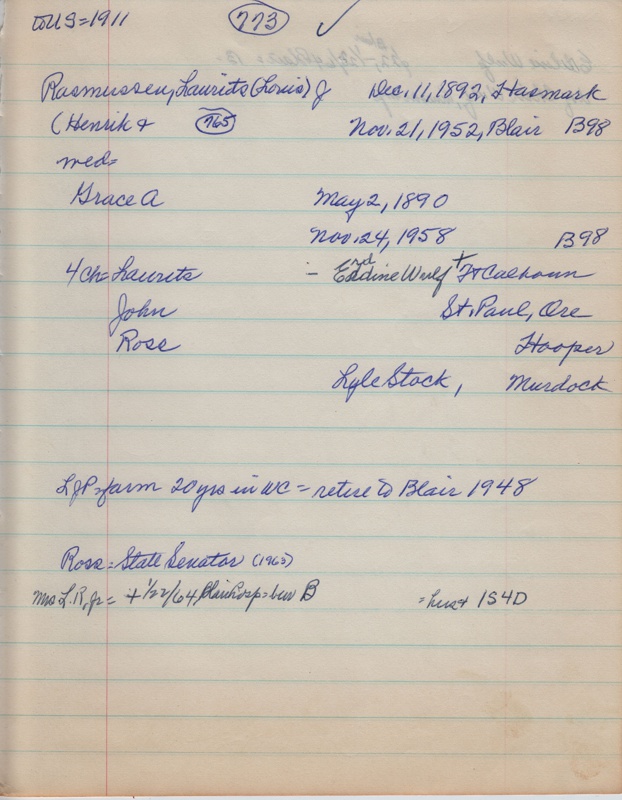 to US=1911 773 ✓
Rasmussen, Laurits (Louis) J Dec. 11, 1892, Hasmark
(Henrik + 765 Nov. 21, 1952, Blair B98
med=
Grace A May 2, 1890
Nov. 24, 1958 B98
4 ch= Laurits - Erdine Wulf + Ft Calhoun
rd
John St. Paul, Ore
Ross Hooper
Lyle Stock, Murdock
LJP=farm 20 yrs in WC = retire to Blair 1948
Ross = State Senator (1963)
Mrs L.R. Jr = + 1/22/64, Blair Hosp = bur B = hus + 1S 4D